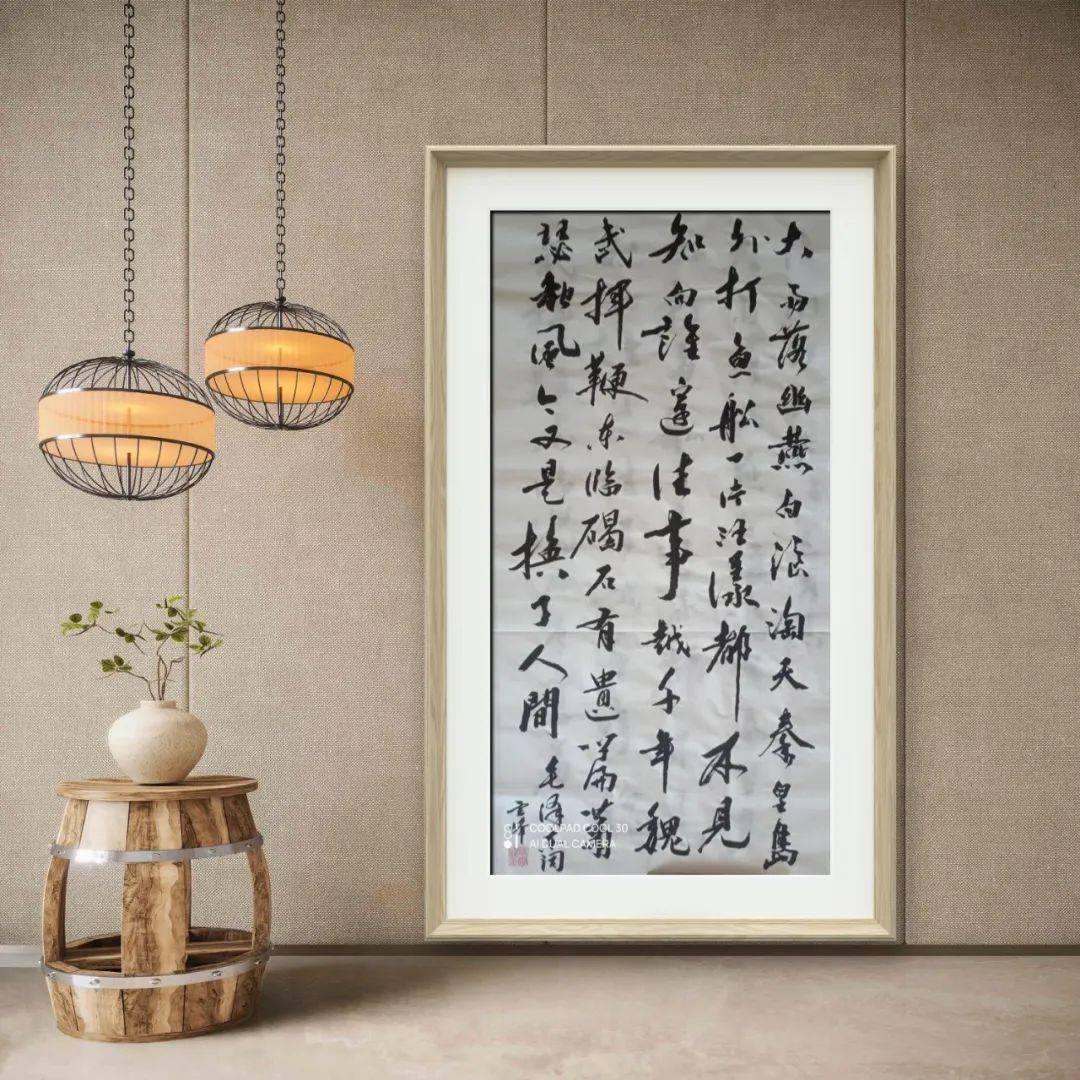 大雨落幽燕白浪淘天秦皇島
外打魚船一片汪漾都不見
知向誰邊往事越千年魏
武揮鞭东臨碣石有遺篇蕭
瑟秋風今又是換了人間
毛泽东词
COOLPAD COOL 30
AI DUAL CAMERA